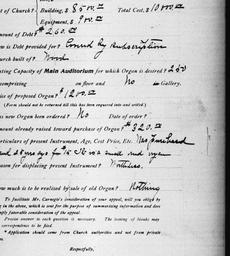 of Church? Building, $ 8500.00 Total Cost, $ 10000.00
Equipment, $ 900.00
mount of Debt? $ 260.00
w is Debt provided for? by Subscription
hurch built of? Wood
ating Capacity of Main Auditorium for which Organ is desired? 250
comprising on floor and No in Gallery.
ice of proposed Organ? $ 1200.00
(Form should not be returned till this has been enquired into and settled.)
as new Organ been Ordered? No Date of order?
mount already raised toward purchase of Organ? $ 320.00
articulars of present Instrument, Age, Cost Price, Etc.
and a small reed organ
eason for displacing present Instrument?
ow much is to be realized by sale of old Organ? Nothing
To facilitate Mr. Carnegie's consideration of your appeal, will you oblige by
ing in the above, which is sure for the purpose of summarizing information and does
imply favorable consideration of the appeal.
Precise answer to each question is necessary. The issuing of blanks may
correspondence to be filed.
* Application should come from Church authorities and not from private
on.
Respectfully,